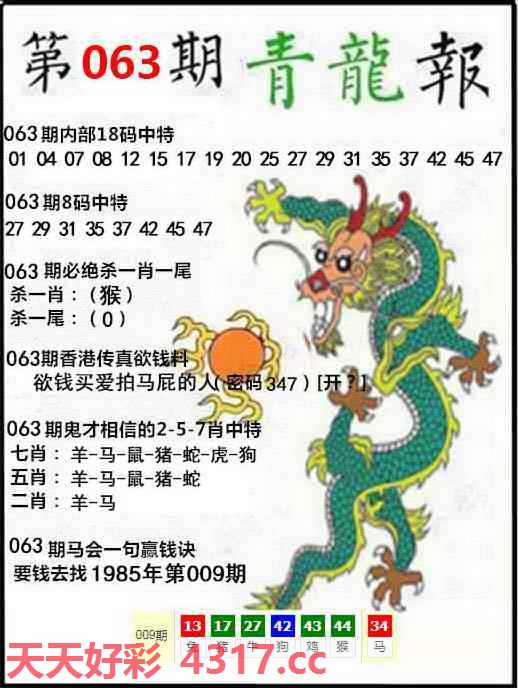 第063期青龍報
063期内部18码中特
01 04 07 08 12 15 17 19 20 25 27 29 31 35 37 42 45 47
063期8码中特
27 29 31 35 37 42 45 47
063期必绝杀一肖一尾
杀一肖：（猴）
杀一尾：（0）
063期香港传真欲钱料
欲钱买爱拍马屁的人（密码347）[开？]
063期鬼才相信的2-5-7肖中特
七肖：羊-马-鼠-猪-蛇-虎-狗
五肖：羊-马-鼠-猪-蛇
二肖：羊-马
063期马会一句赢钱诀
要钱去找1985年第009期
009期 13 17 27 42 43 44 34
兔 猪 牛 狗 鸡 猴 马
天天好彩 4317.cc